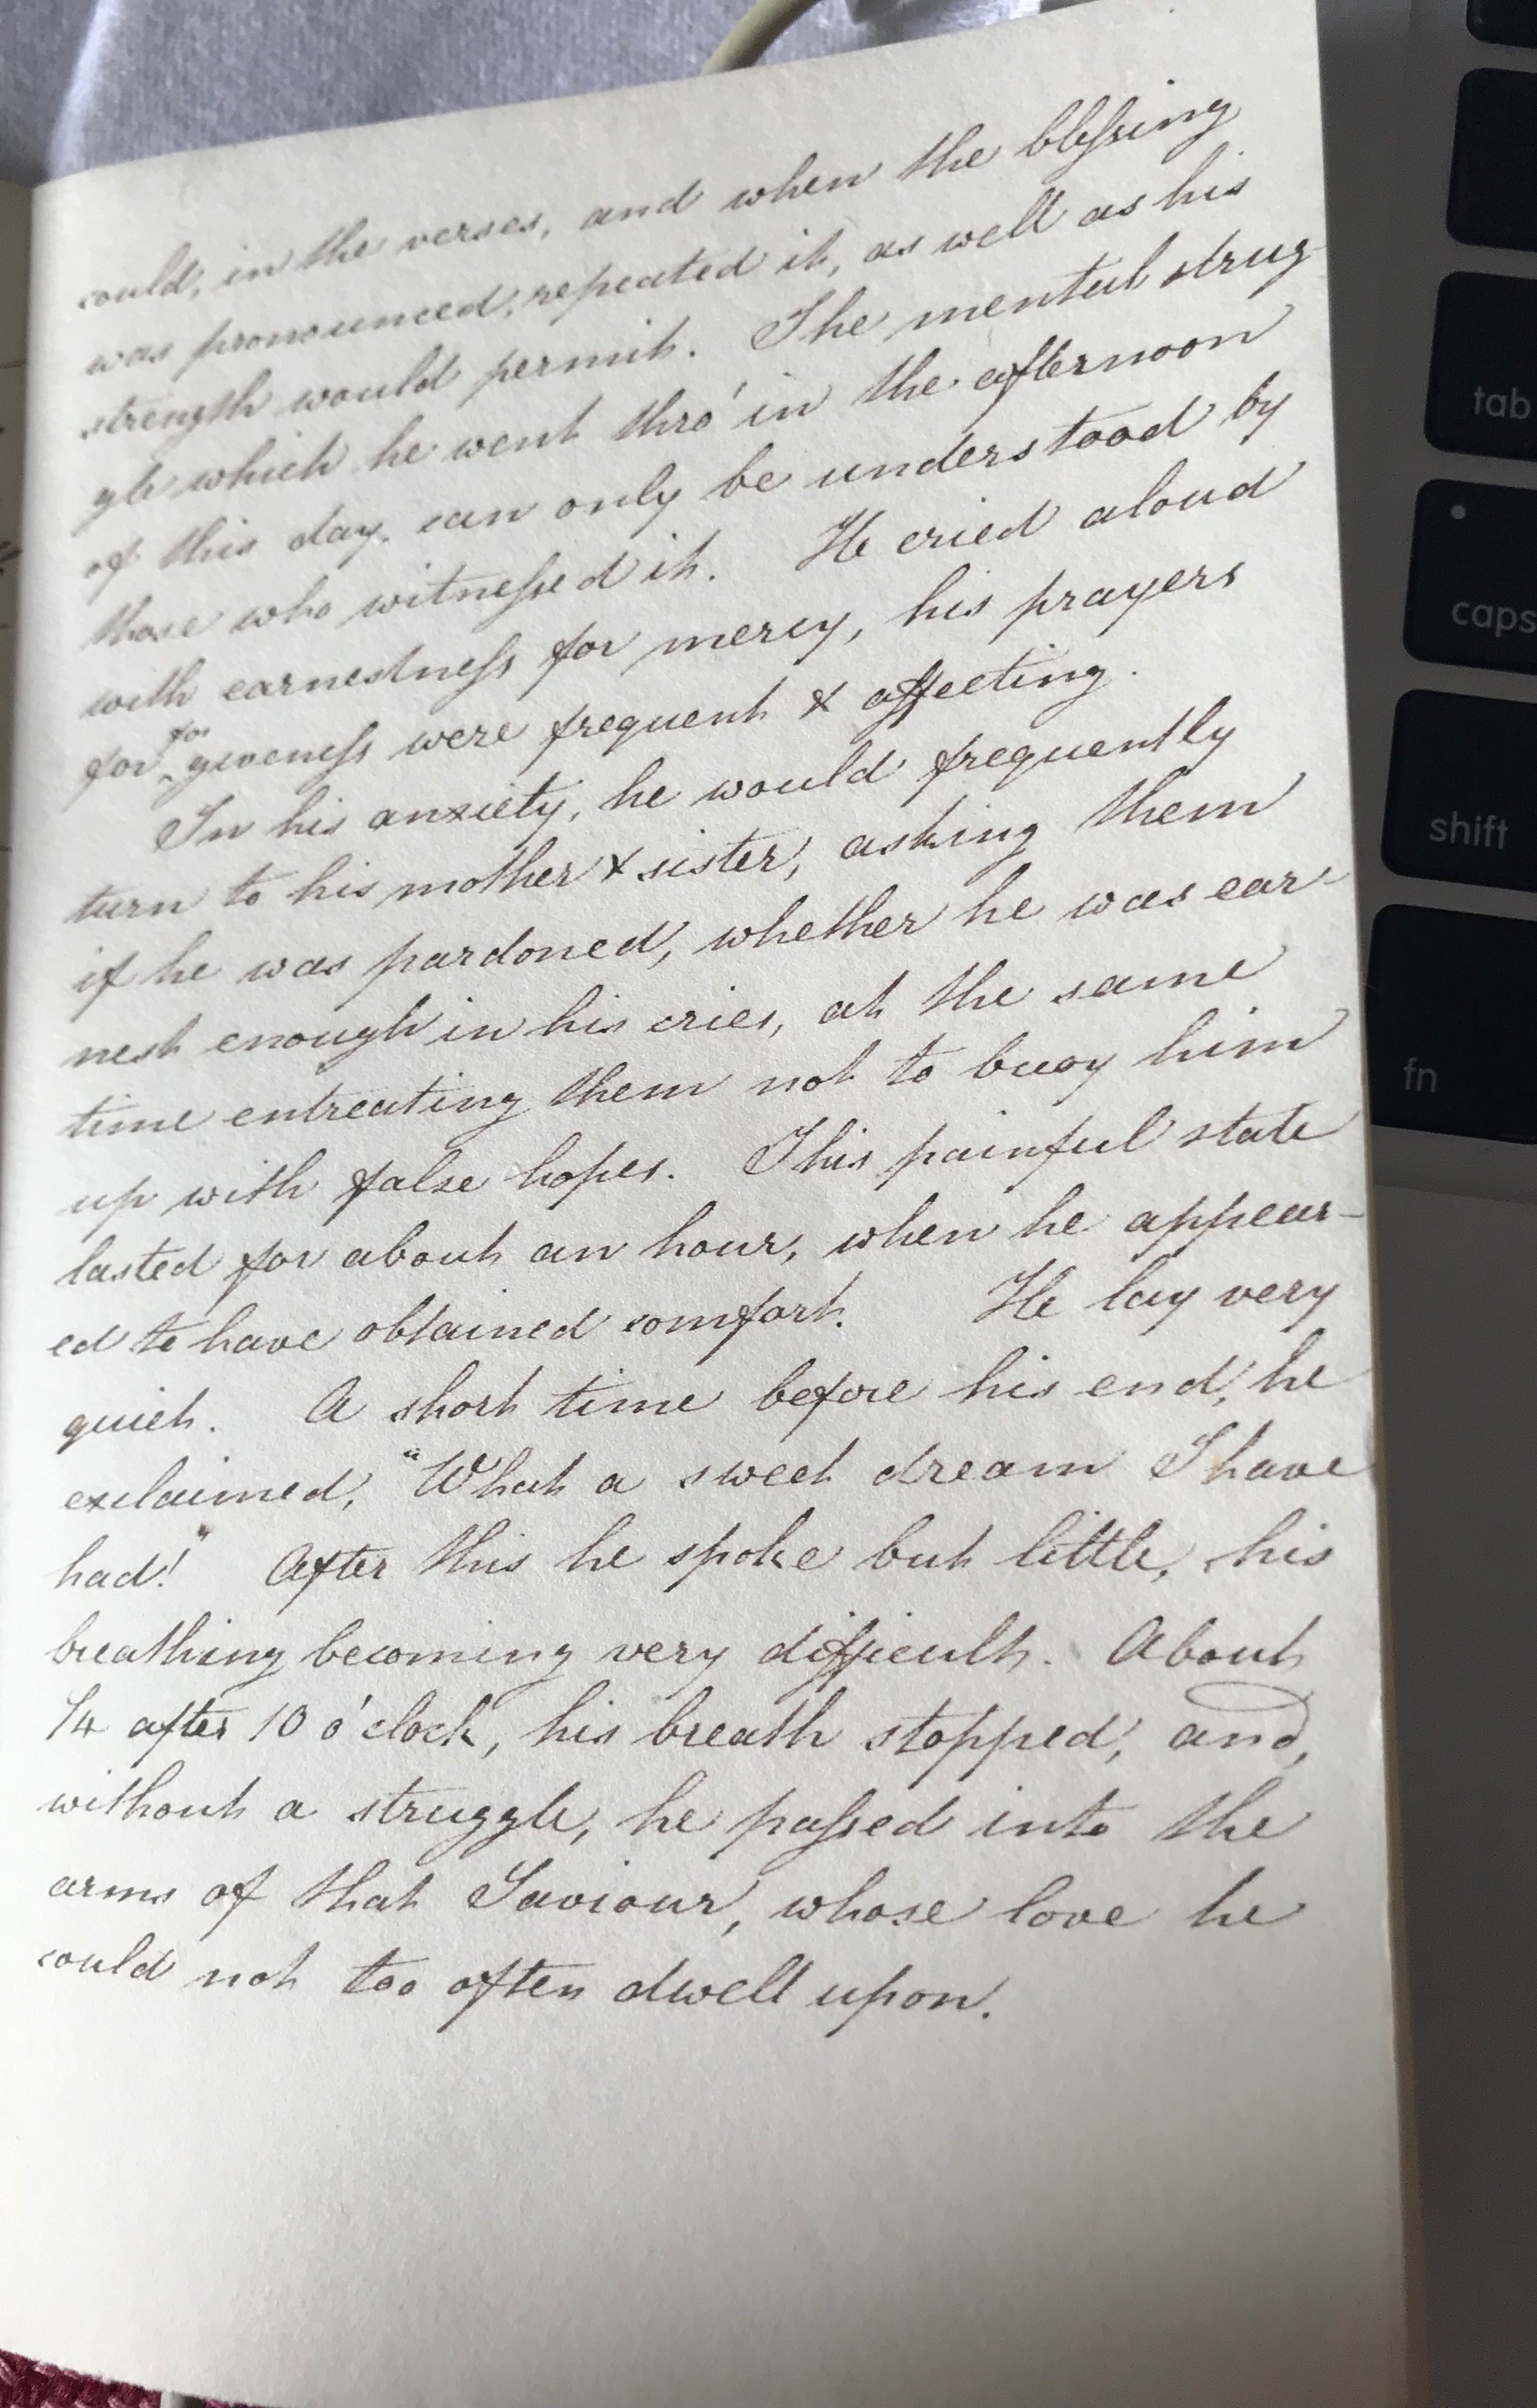 could, in the verses, and when the bleſsing
was pronounced, repeated it, as well as his
strength would permit. The mental strug-
gle which he went thro' in the afternoon
of this day. can only be understood by
those who witneſsed it. He cried aloud
with earnestneſs for mercy, his prayers
for
for^giveneſs were frequent & affecting.
In his anxiety, he would frequently
turn to his mother & sister, asking them
if he was pardoned, whether he was ear-
nest enough in his cries, at the same
time entreating them not to buoy him
up with false hopes. This painful state
lasted for about an hour, when he appear-
ed to have obtained comfort. He lay very
quiet. A short time before his end, he
exclaimed, "What a sweet dream I have
had!" After this he spoke but little, his
breathing becoming very difficult. About
1/4 after 10 o'clock, his breath stopped, and,
without a struggle, he paſsed into the
arms of that Saviour, whose love he
could not too often dwell upon.
tab
caps
shift
fn